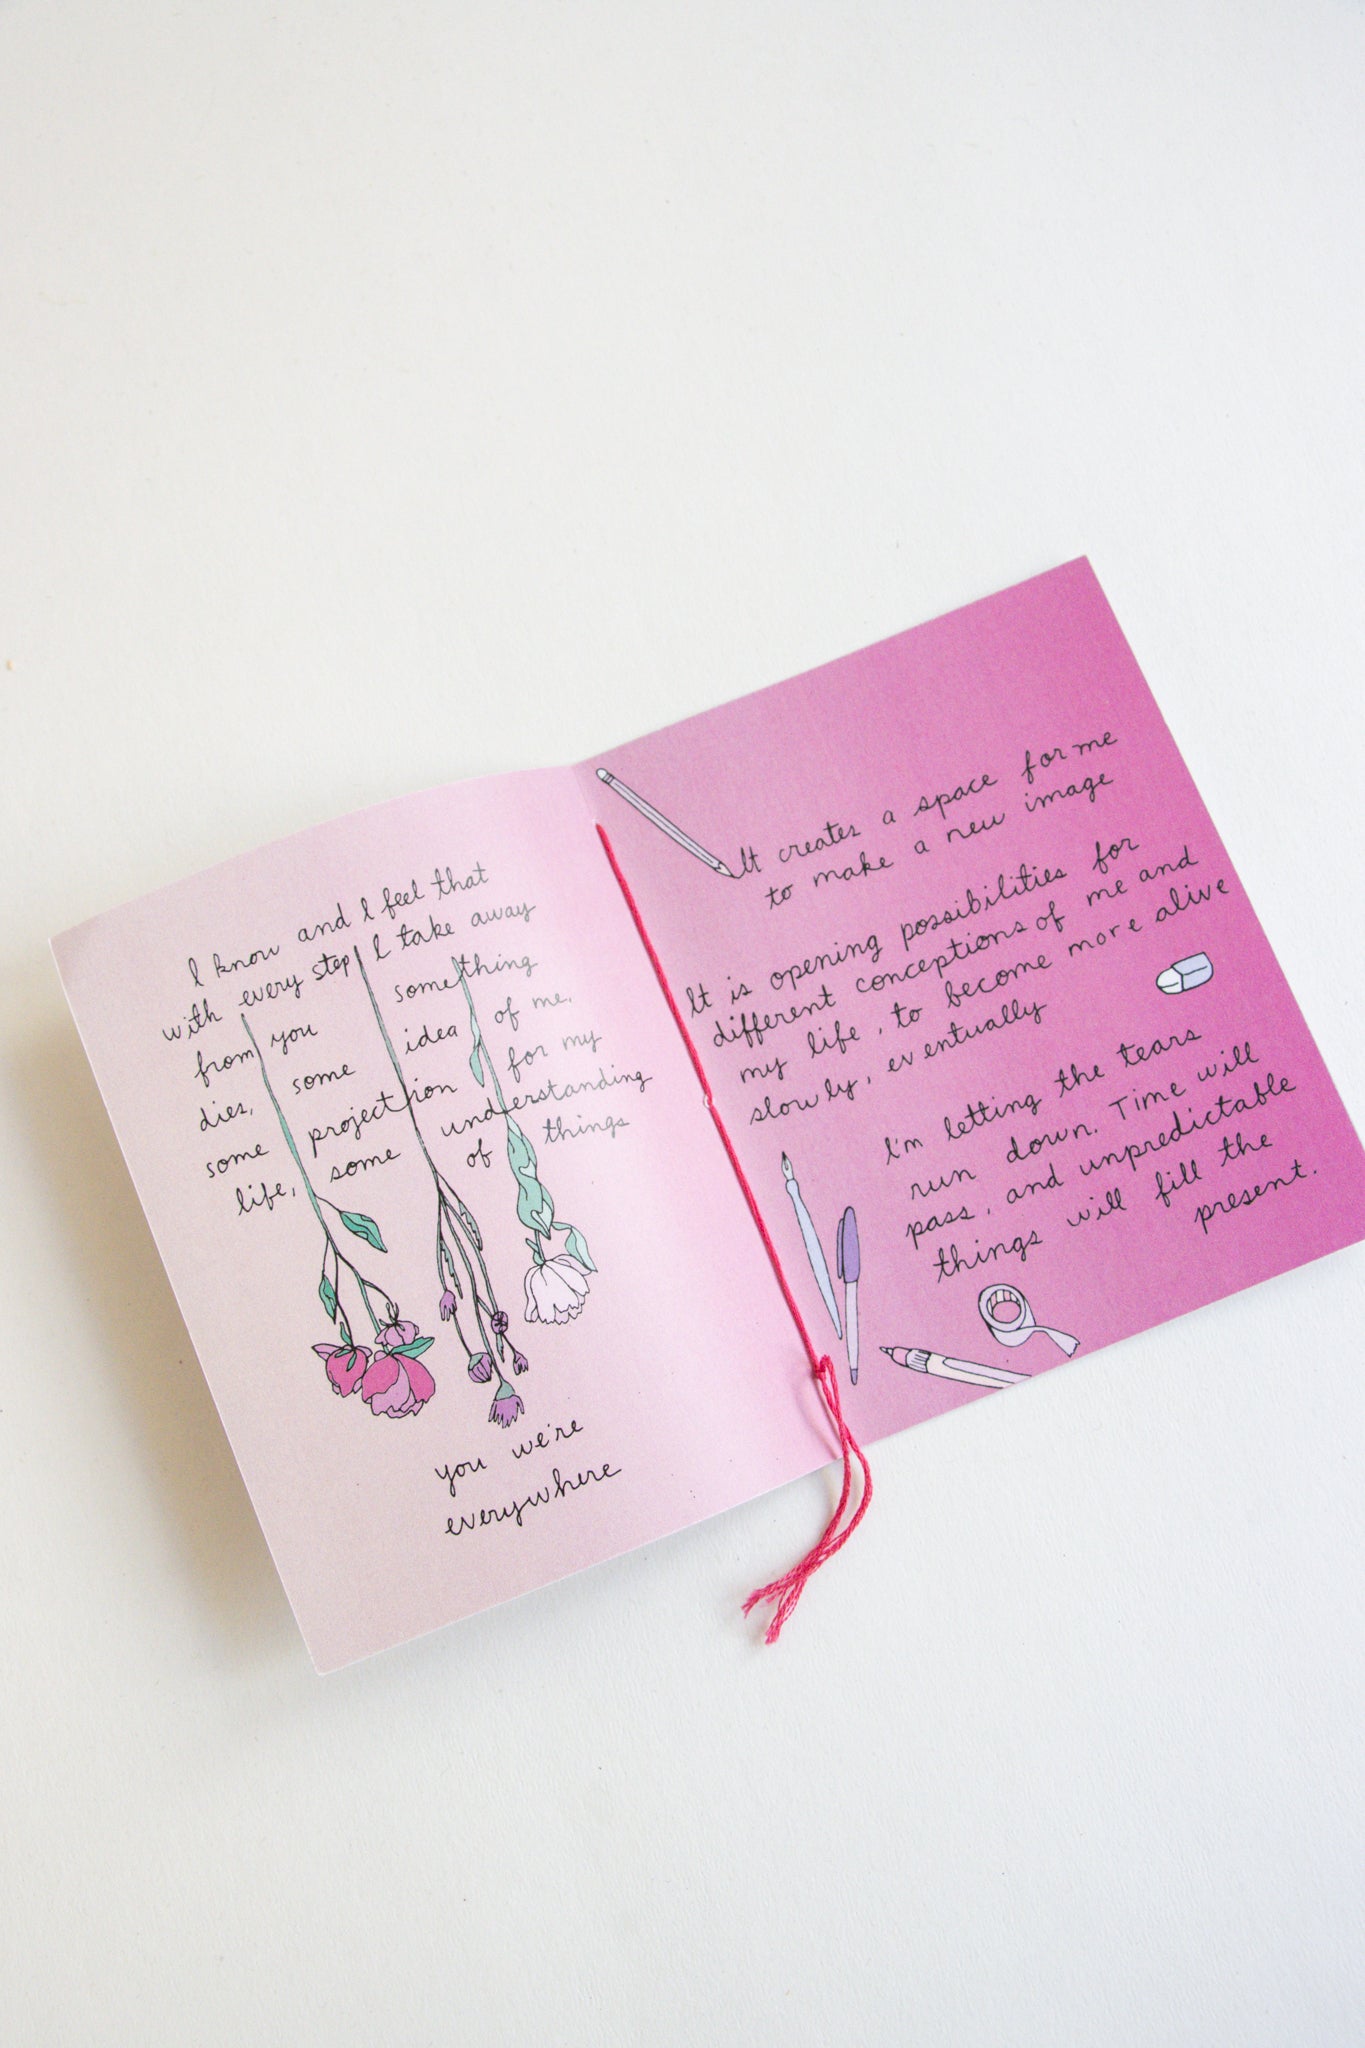 I know and I feel that
with every step I take away
from you something
dies, some idea of me,
some projection for my
life, some understanding
of things
you we're
everywhere
It creates a space for me
to make a new image
It is opening possibilities for
different conceptions of me and
my life, to become more alive
slowly, eventually
I'm letting the tears
run down. Time will
pass, and unpredictable
things will fill the
present.